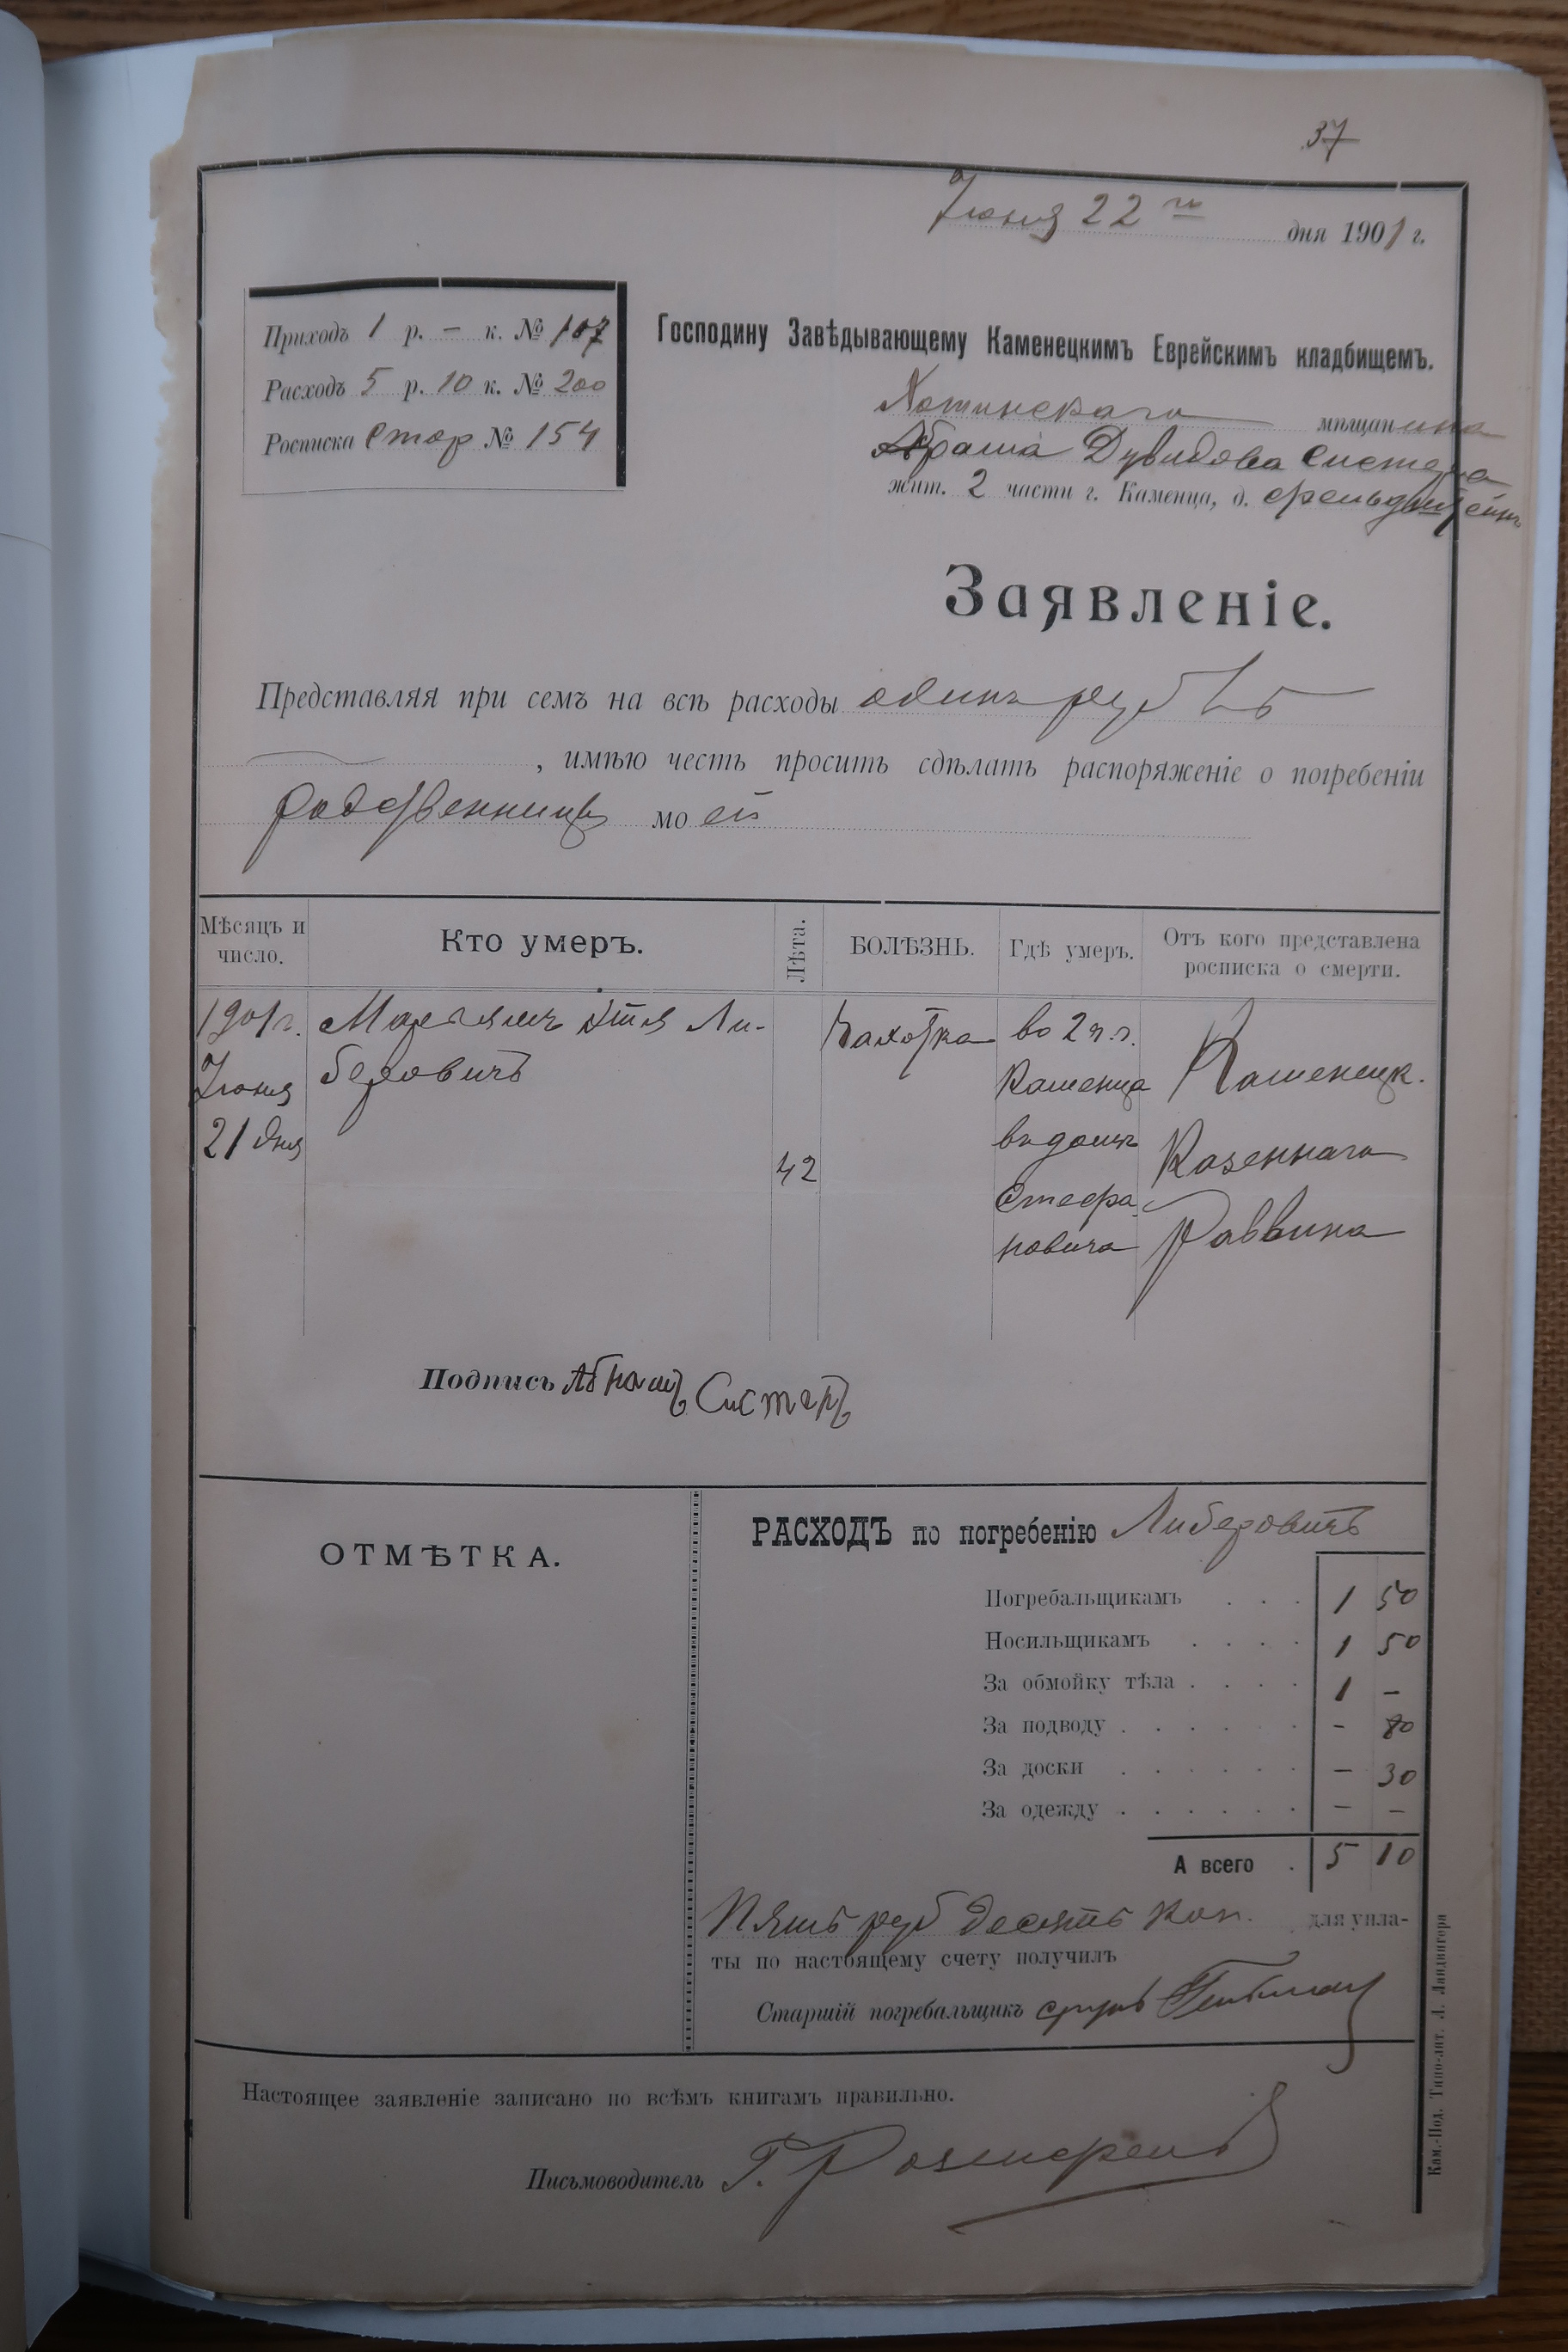 37
Іюня 22го дня 1901 г.
Приходъ 1 р. — к. № 107
Расходъ 5 р. 10 к. № 200
Росписка Стар № 154
Господину Завѣдывающему Каменецкимъ Еврейскимъ кладбищемъ.
Хотинскаго мѣщанина
Абрама Дувидова Систера
жит. 2 части г. Каменца, д.
Заявленіе.
Представляя при семъ на всѣ расходы одинъ рубль
, имѣю честь просить сдѣлать распоряженіе о погребеніи
родственницы моей
Мѣсяцъ и число. Кто умеръ. Лѣта. БОЛѢЗНЬ. Гдѣ умеръ. Отъ кого представлена росписка о смерти.
1901 г. Марьямъ Этя Ли- Чахотка во 2 ч. г.
Іюня беровичъ Каменца Каменецк.
21 дня 42 въ домѣ Казеннаго
Стефа-
новича Раввина
Подпись Абрамъ Систеръ
ОТМѢТКА.
РАСХОДЪ по погребенію Либеровичъ
Погребальщикамъ . . . 1 50
Носильщикамъ . . . . 1 50
За обмойку тѣла . . . . 1 —
За подводу . . . . . — 80
За доски . . . . . . — 30
За одежду . . . . . . — —
А всего . 5 10
Пять руб десять коп. для упла-
ты по настоящему счету получилъ
Старшій погребальщикъ
Настоящее заявленіе записано по всѣмъ книгамъ правильно.
Письмоводитель Г.
Кам.-Под. Типо-лит. Л. Ландвигера